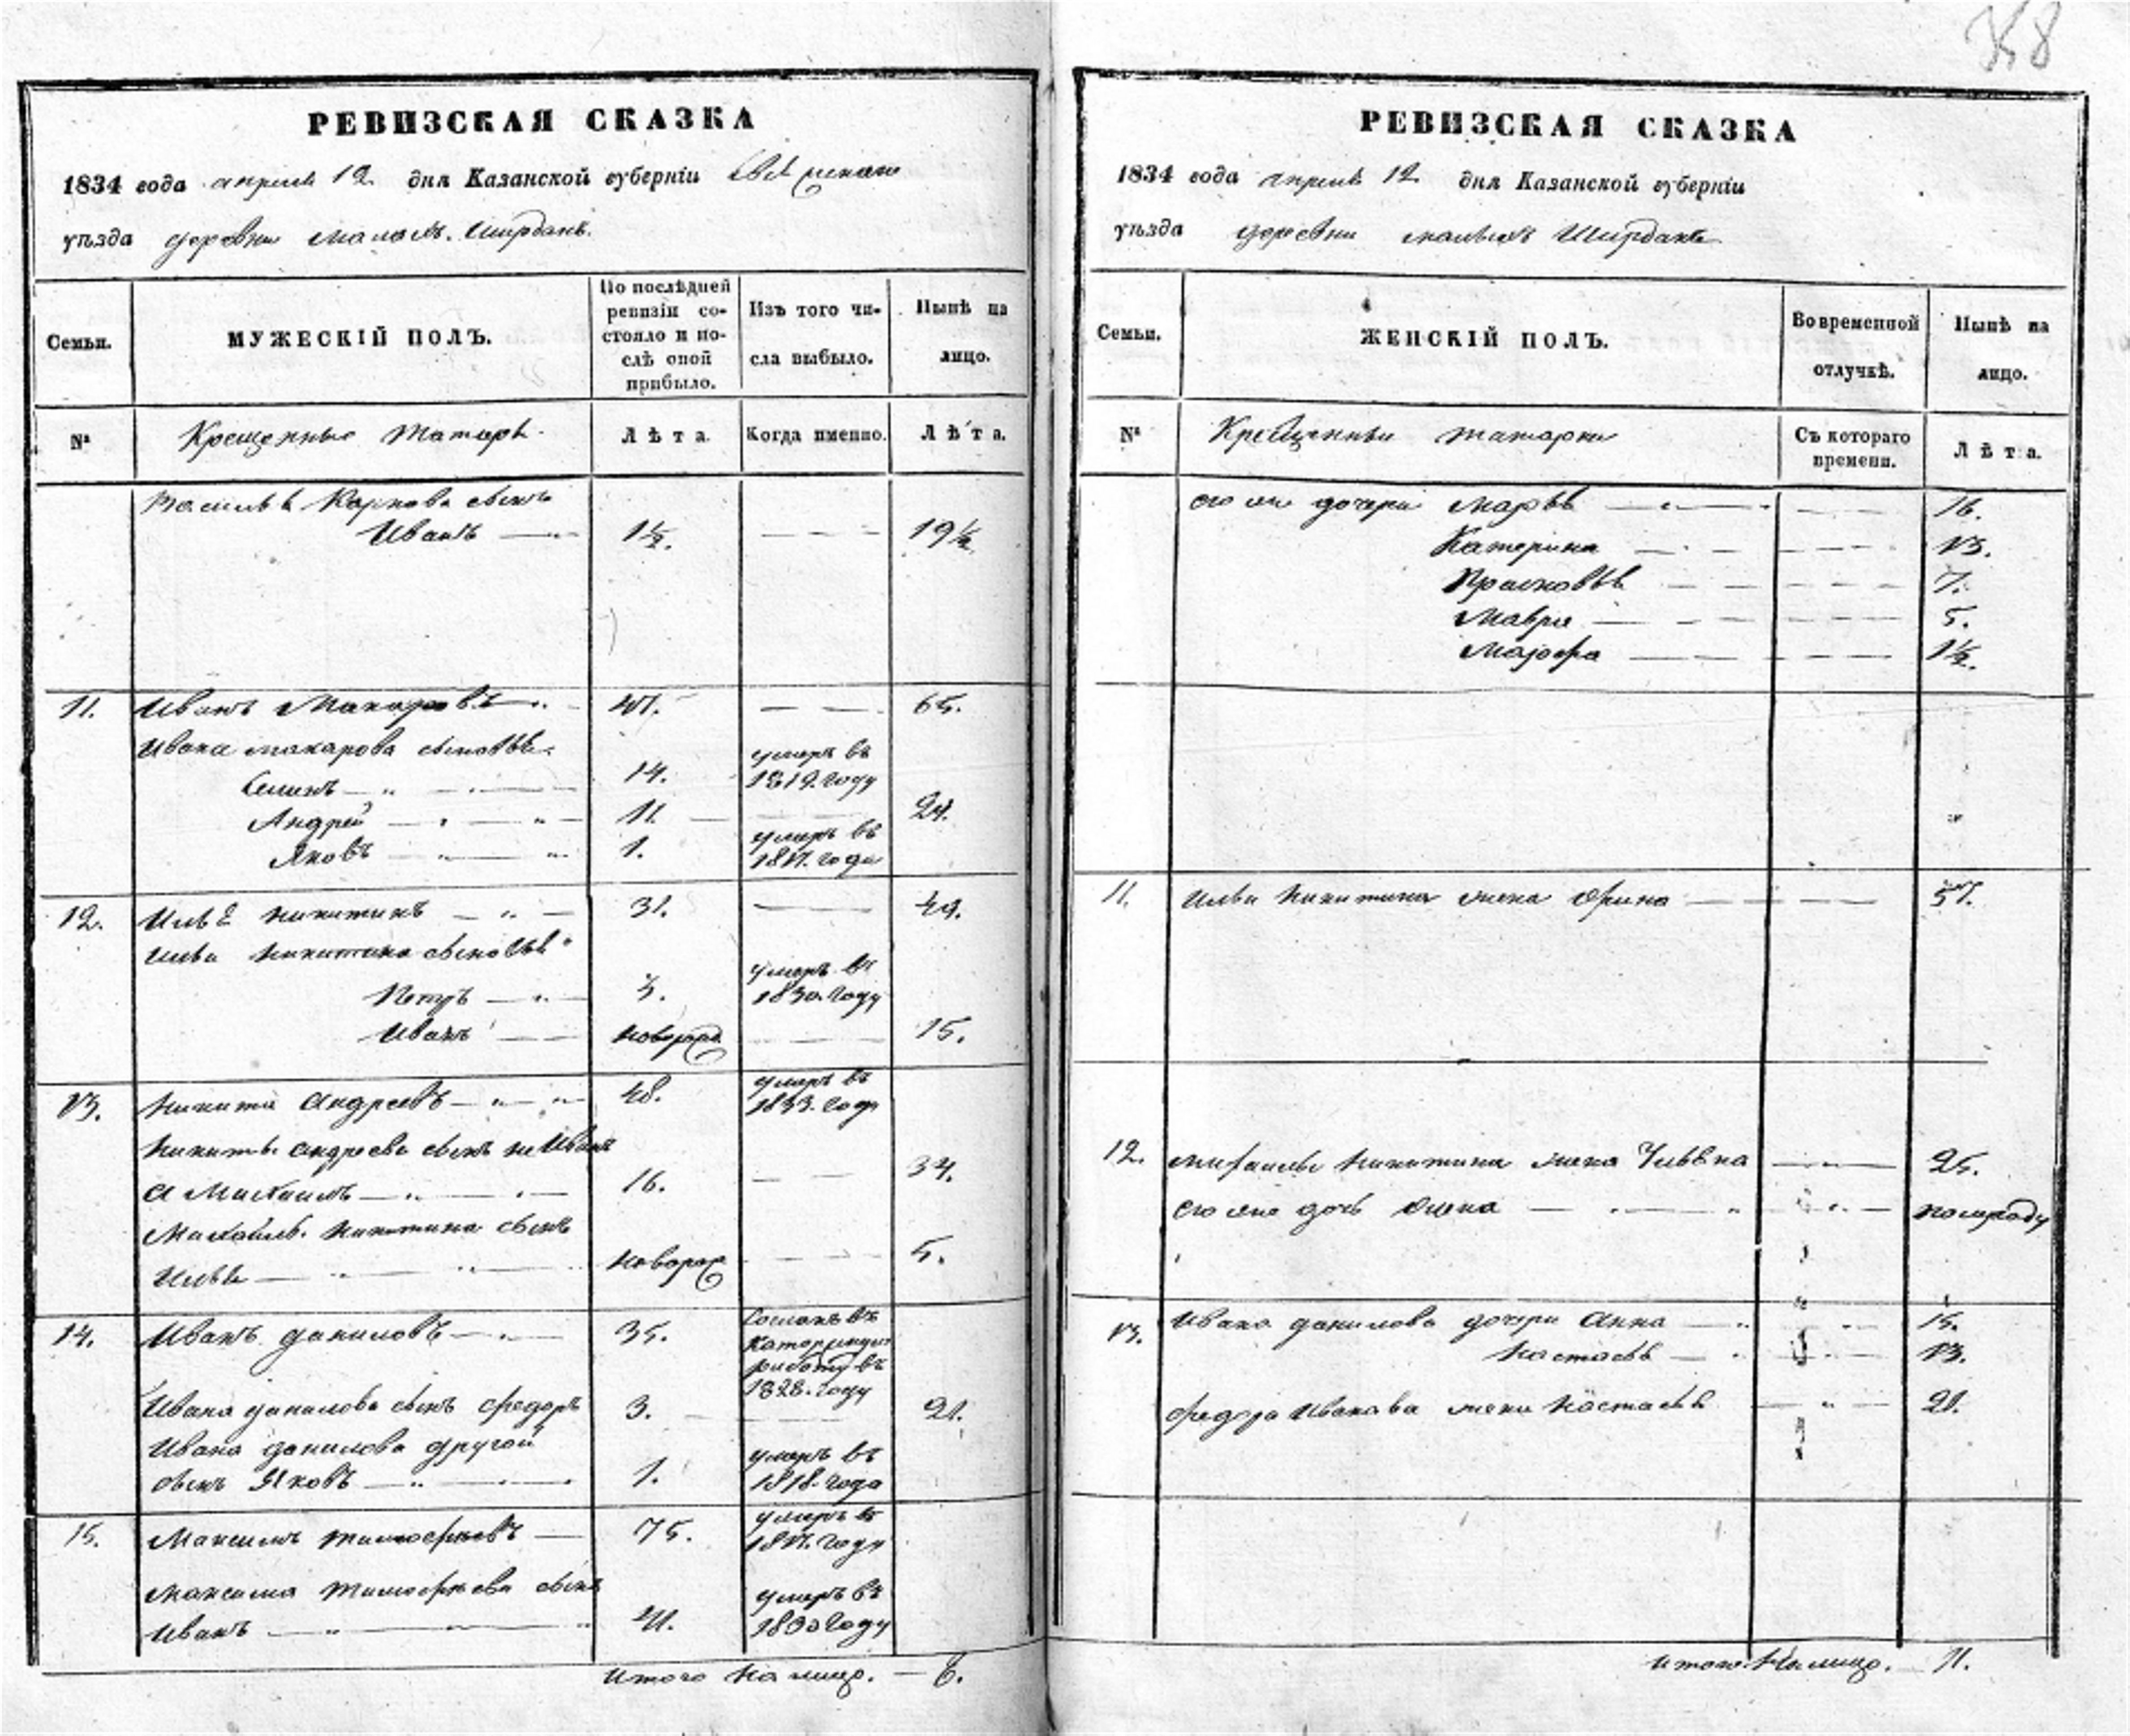 Ж8
РЕВИЗСКАЯ СКАЗКА
1834 года апреля 12 дня Казанской губернїи
уѣзда деревни Малыхъ Ширданъ.
Семьи.
МУЖЕСКІЙ ПОЛЪ.
По послѣдней ревизіи состояло и послѣ оной прибыло.
Изъ того числа выбыло.
Нынѣ на лицо.
№
Крещенные татаръ
Лѣта.
Когда именно.
Лѣта.
Василья Карпова сынъ
Иванъ 1½. 19½
11. Иванъ Макаровъ 47. 65.
Ивана макарова сыновья
Семенъ 14. умеръ въ 1819. году
Андрей 11. 29.
Яковъ 1. умеръ въ 1817. года
12. Илья никитинъ 31. 49.
Ильи никитина сыновья
Петръ 3. умеръ въ 1830. году
Иванъ новорож 15.
13. Никита андреевъ 48. умеръ въ 1833. года
Никиты андреева сынъ не Иванъ
а Михаилъ 16. 34.
Михаилы никитина сынъ
Илья новорож 5.
14. Иванъ даниловъ 35. Сосланъ въ каторжную работу въ 1828. году
Ивана данилова сынъ федоръ 3. 21.
Ивана данилова другой
сынъ Яковъ 1. умеръ въ 1818. года
15. Максимъ тимофѣевъ 75. умеръ въ 1817. году
максима тимофѣева сынъ
Иванъ умеръ въ 1830 году
Итого на лицо. 6.
РЕВИЗСКАЯ СКАЗКА
1834 года апреля 12 дня Казанской губернїи
уѣзда деревни малыхъ Ширданъ
Семьи.
ЖЕНСКІЙ ПОЛЪ.
Во временной отлучкѣ.
Нынѣ на лицо.
№
Крещенныи татарки
Съ котораго времени.
Лѣта.
его же дочери Марья 16.
Катерина 13.
Прасковья 7.
Мавра 5.
1½.
11. Ильи никитина жена Орина 51.
12. михаилы никитина жена 25.
его же дочь Олена полугоду
13. Ивана данилова дочери Анна 15.
Настасья 13.
федора Иванова жена Настасья 21.
Итого на лицо. 11.